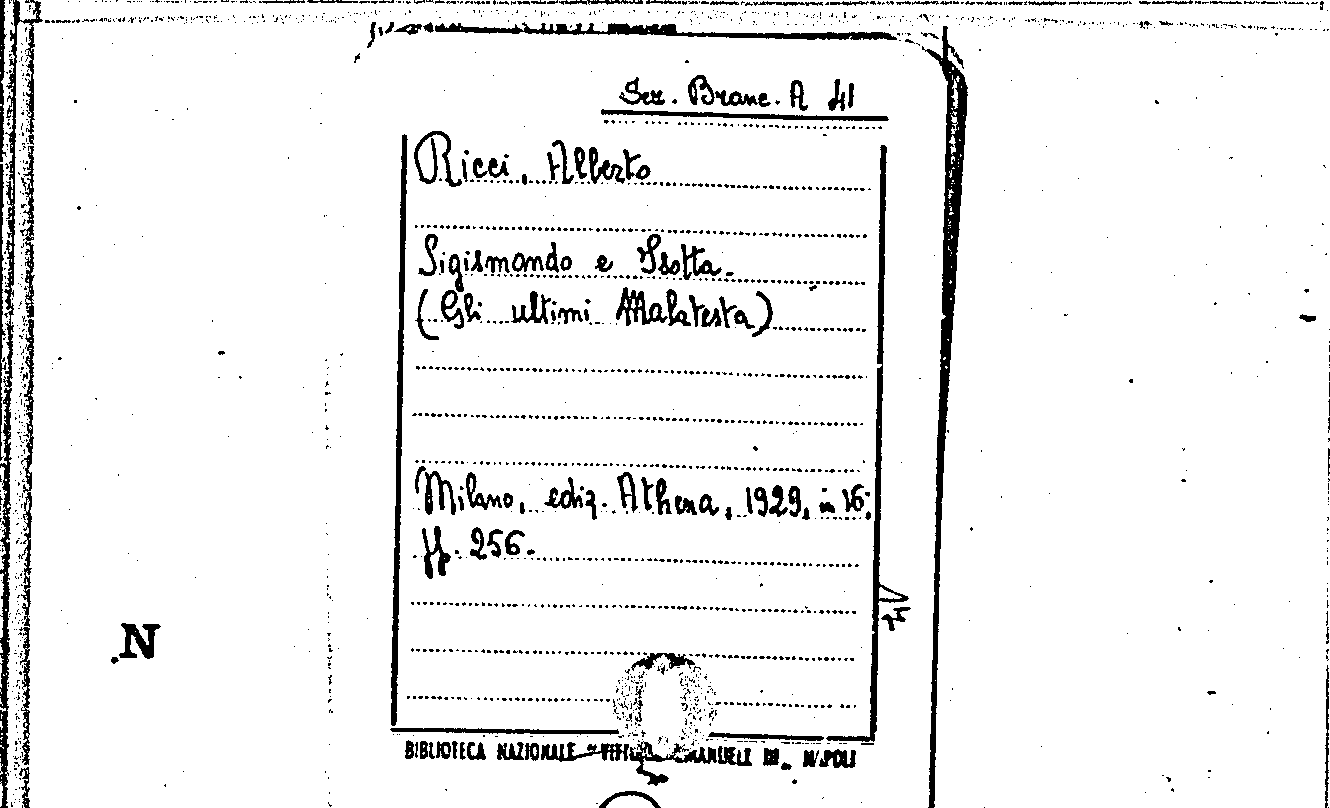 Sez. Branc. A 41
Ricci, Alberto
Sigismondo e Isotta.
(Gli ultimi Malatesta)
Milano, ediz. Athena, 1929, in 16;
pp. 256.
N
BIBLIOTECA NAZIONALE "VITTORIO EMANUELE III" NAPOLI